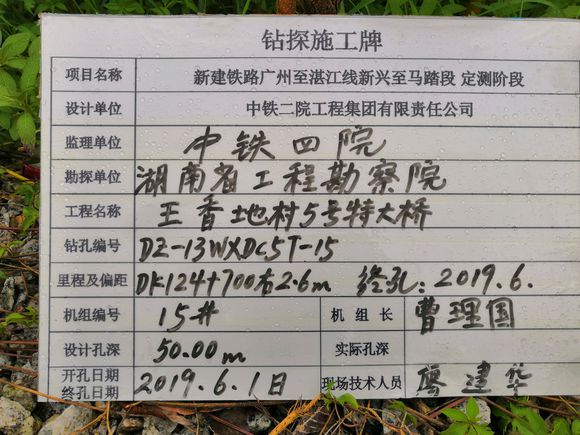 钻探施工牌
项目名称 新建铁路广州至湛江线新兴至马踏段 定测阶段
设计单位 中铁二院工程集团有限责任公司
监理单位 中铁四院
勘探单位 湖南省工程勘察院
工程名称 王香地村5号特大桥
钻孔编号 DZ-13WXDC5T-15
里程及偏距 DK124+700右2.6m 终孔:2019.6.
机组编号 15# 机组长 曹理国
设计孔深 50.00m 实际孔深
开孔日期 2019.6.1日 现场技术人员 廖建华
终孔日期